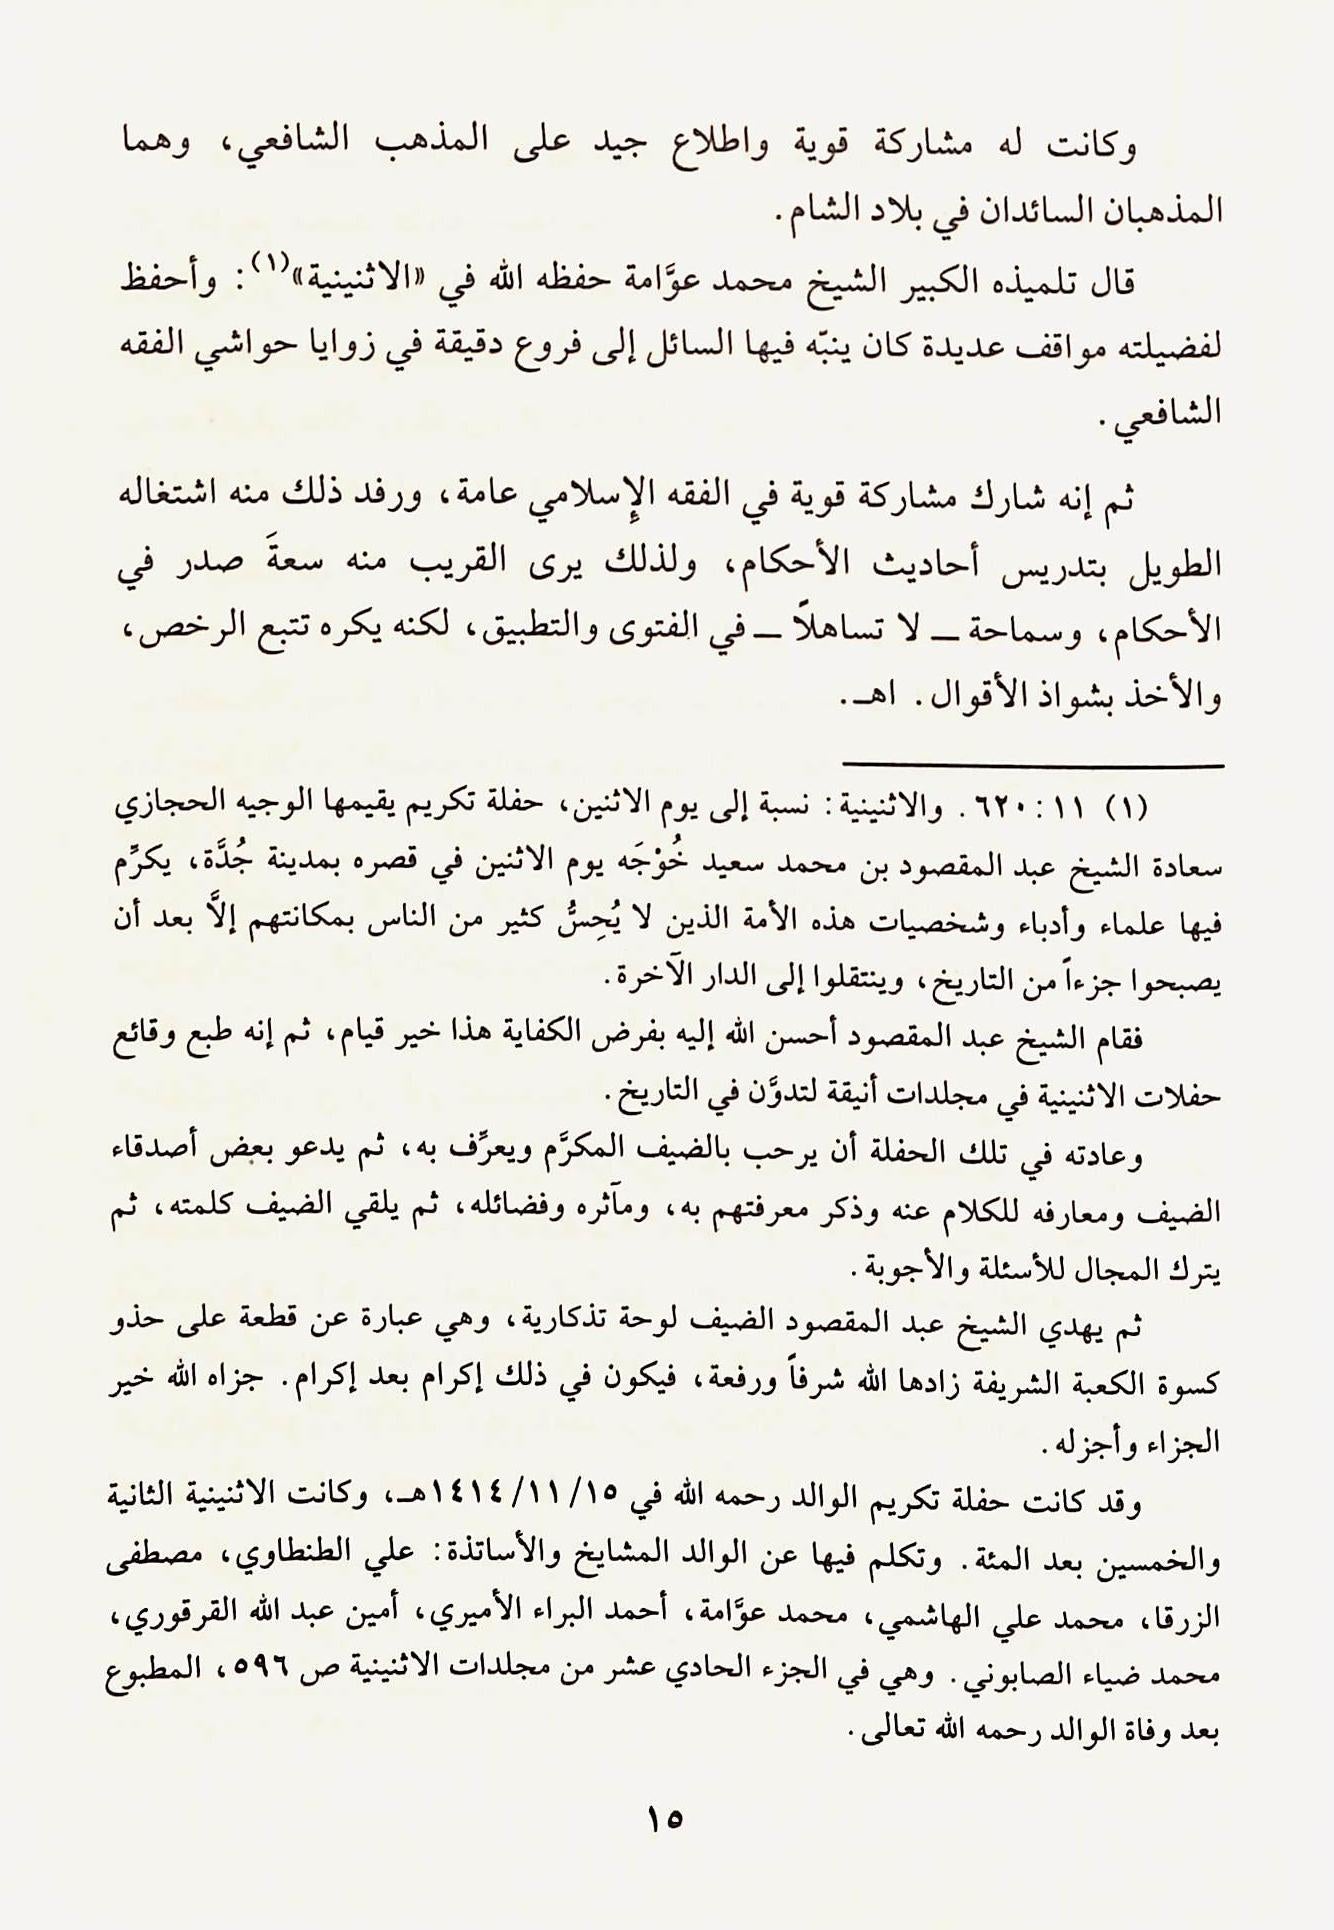 وكانت له مشاركة قوية واطلاع جيد على المذهب الشافعي، وهما
المذهبان السائدان في بلاد الشام.
قال تلميذه الكبير الشيخ محمد عوَّامة حفظه الله في «الاثنينية»(١): وأحفظ
لفضيلته مواقف عديدة كان ينبّه فيها السائل إلى فروع دقيقة في زوايا حواشي الفقه
الشافعي.
ثم إنه شارك مشاركة قوية في الفقه الإِسلامي عامة، ورفد ذلك منه اشتغاله
الطويل بتدريس أحاديث الأحكام، ولذلك يرى القريب منه سعةَ صدر في
الأحكام، وسماحة ــ لا تساهلاً ــ في الفتوى والتطبيق، لكنه يكره تتبع الرخص،
والأخذ بشواذ الأقوال. اهـ.
(١) ١١: ٦٢٠. والاثنينية: نسبة إلى يوم الاثنين، حفلة تكريم يقيمها الوجيه الحجازي
سعادة الشيخ عبد المقصود بن محمد سعيد خُوْجَه يوم الاثنين في قصره بمدينة جُدَّة، يكرِّم
فيها علماء وأدباء وشخصيات هذه الأمة الذين لا يُحِسُّ كثير من الناس بمكانتهم إلاَّ بعد أن
يصبحوا جزءاً من التاريخ، وينتقلوا إلى الدار الآخرة.
فقام الشيخ عبد المقصود أحسن الله إليه بفرض الكفاية هذا خير قيام، ثم إنه طبع وقائع
حفلات الاثنينية في مجلدات أنيقة لتدوَّن في التاريخ.
وعادته في تلك الحفلة أن يرحب بالضيف المكرَّم ويعرِّف به، ثم يدعو بعض أصدقاء
الضيف ومعارفه للكلام عنه وذكر معرفتهم به، ومآثره وفضائله، ثم يلقي الضيف كلمته، ثم
يترك المجال للأسئلة والأجوبة.
ثم يهدي الشيخ عبد المقصود الضيف لوحة تذكارية، وهي عبارة عن قطعة على حذو
كسوة الكعبة الشريفة زادها الله شرفاً ورفعة، فيكون في ذلك إكرام بعد إكرام. جزاه الله خير
الجزاء وأجزله.
وقد كانت حفلة تكريم الوالد رحمه الله في ١٤١٤/١١/١٥هـ، وكانت الاثنينية الثانية
والخمسين بعد المئة. وتكلم فيها عن الوالد المشايخ والأساتذة: علي الطنطاوي، مصطفى
الزرقا، محمد علي الهاشمي، محمد عوَّامة، أحمد البراء الأميري، أمين عبد الله القرقوري،
محمد ضياء الصابوني. وهي في الجزء الحادي عشر من مجلدات الاثنينية ص ٥٩٦، المطبوع
بعد وفاة الوالد رحمه الله تعالى.
١٥